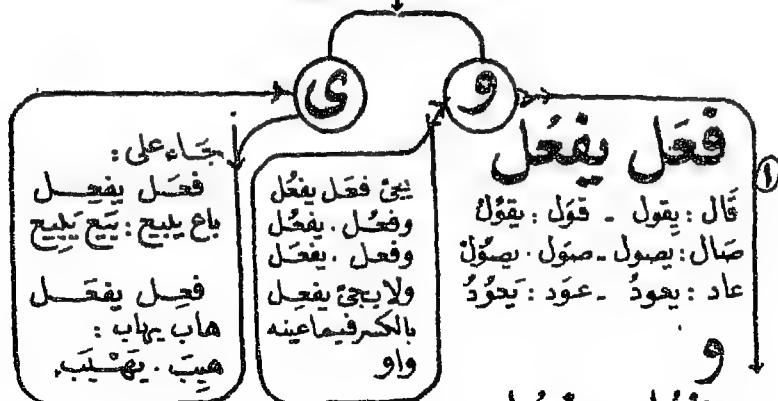 و
ى
فعَل يفعُل
١
قَال : يقول - قوَل : يقوُلُ
صَال : يصول - صوَل . يصوُلُ
عاد : يعودُ - عوَد : يَعوُدُ
و
يجئ فعَل يفعُل
وفعُل . يفعُل
وفعِل . يفعَل
ولا يجئ يفعِل
بالكسر فيما عينه
واو
جَاء على :
فعَل يفعِل
باع يبيع : بَيَع يَبيِع
فعِل يفعَل
هاب يهاب :
هيِبَ . يَهْيَب